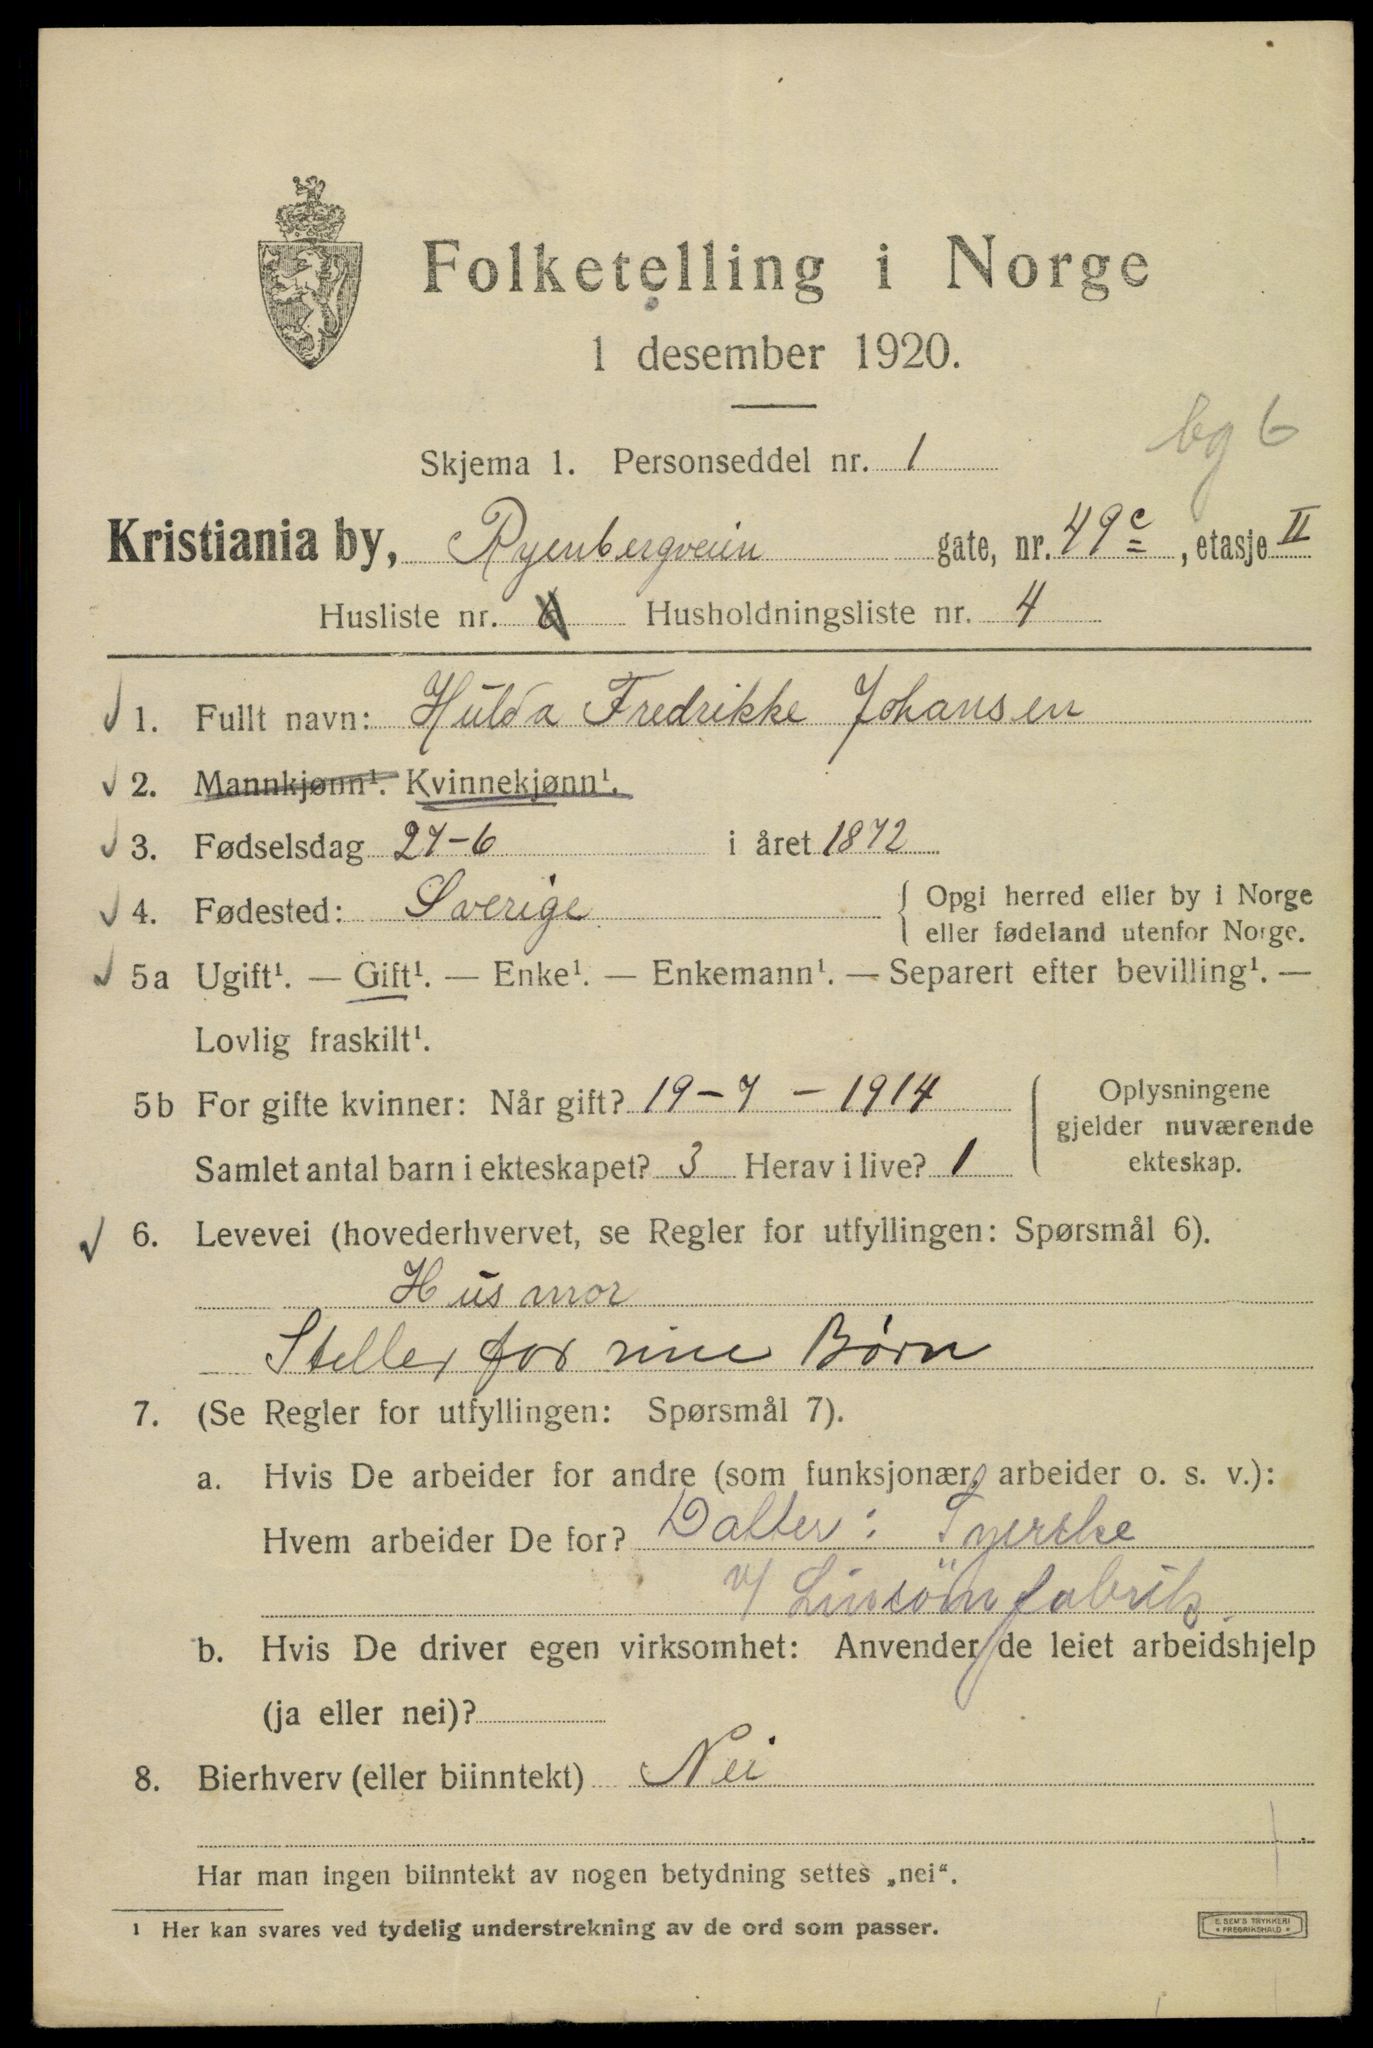 Folketelling i Norge
1 desember 1920.
bg 6
Skjema 1. Personseddel nr. 1
Kristiania by, Ryenbergveiin gate, nr. 49c, etasje II
Husliste nr. Husholdningsliste nr. 4
1. Fullt navn: Hulda Fredrikke Johansen
2. Mannkjønn¹. Kvinnekjønn¹.
3. Fødselsdag 27-6 i året 1872
4. Fødested: Sverige { Opgi herred eller by i Norge
eller fødeland utenfor Norge.
5a Ugift¹. — Gift¹. — Enke¹. — Enkemann¹. — Separert efter bevilling¹. —
Lovlig fraskilt¹.
5b For gifte kvinner: Når gift? 19-7-1914
Samlet antal barn i ekteskapet? 3 Herav i live? 1
{ Oplysningene
gjelder nuværende
ekteskap.
6. Levevei (hovederhvervet, se Regler for utfyllingen: Spørsmål 6).
Husmor
Steller for mine Børn
7. (Se Regler for utfyllingen: Spørsmål 7).
a. Hvis De arbeider for andre (som funksjonær, arbeider o. s. v.):
Hvem arbeider De for? Datter:
v/ fabrik.
b. Hvis De driver egen virksomhet: Anvender de leiet arbeidshjelp
(ja eller nei)?
8. Bierhverv (eller biinntekt) Nei
Har man ingen biinntekt av nogen betydning settes „nei“.
1 Her kan svares ved tydelig understrekning av de ord som passer.
E. SEM'S TRYKKERI
* FREDRIKSHALD *